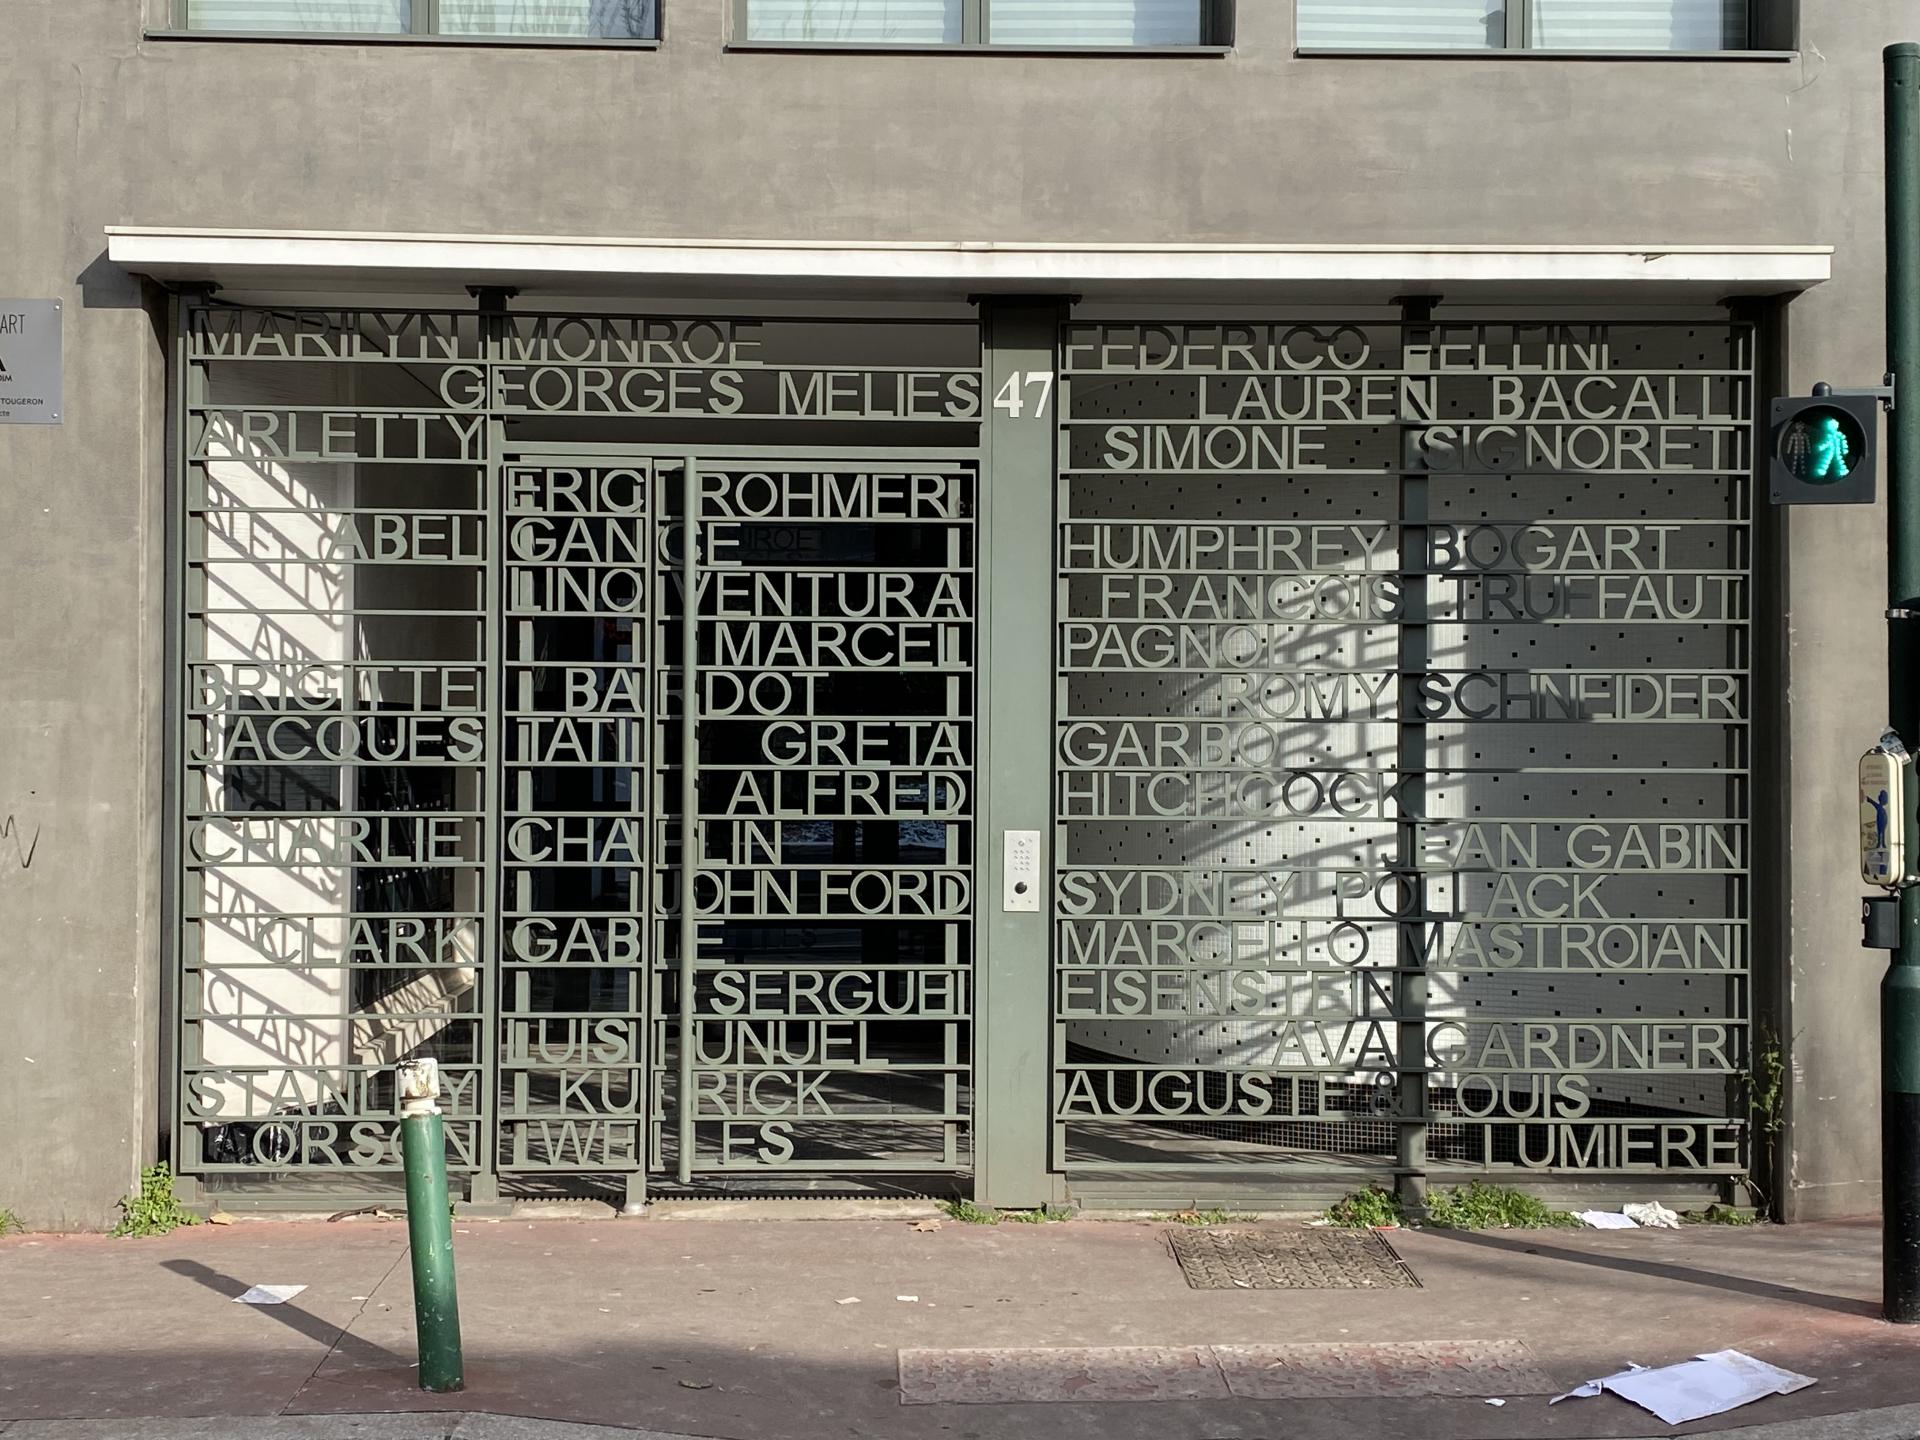 MARILYN MONROE FEDERICO FELLINI
GEORGES MELIES 47 LAUREN BACALL
ARLETTY SIMONE SIGNORET
ERIC ROHMER
ABEL GANCE HUMPHREY BOGART
LINO VENTURA FRANCOIS TRUFFAUT
MARCEL PAGNOL
BRIGITTE BARDOT ROMY SCHNEIDER
JACQUES TATI GRETA GARBO
ALFRED HITCHCOCK
CHARLIE CHAPLIN JEAN GABIN
JOHN FORD SYDNEY POLLACK
CLARK GABLE MARCELLO MASTROIANI
SERGUEI EISENSTEIN
LUIS BUNUEL AVA GARDNER
STANLEY KUBRICK AUGUSTE & LOUIS
ORSON WELLES LUMIERE
ART
TOUGERON